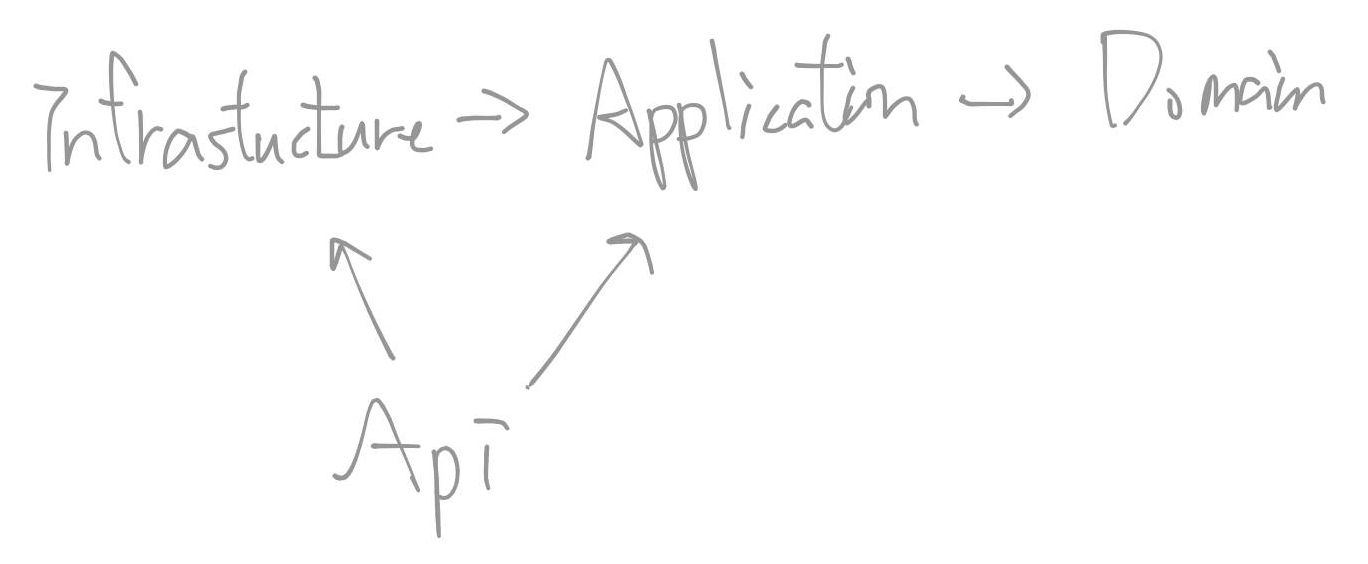 Infrastucture → Application → Domain
Api